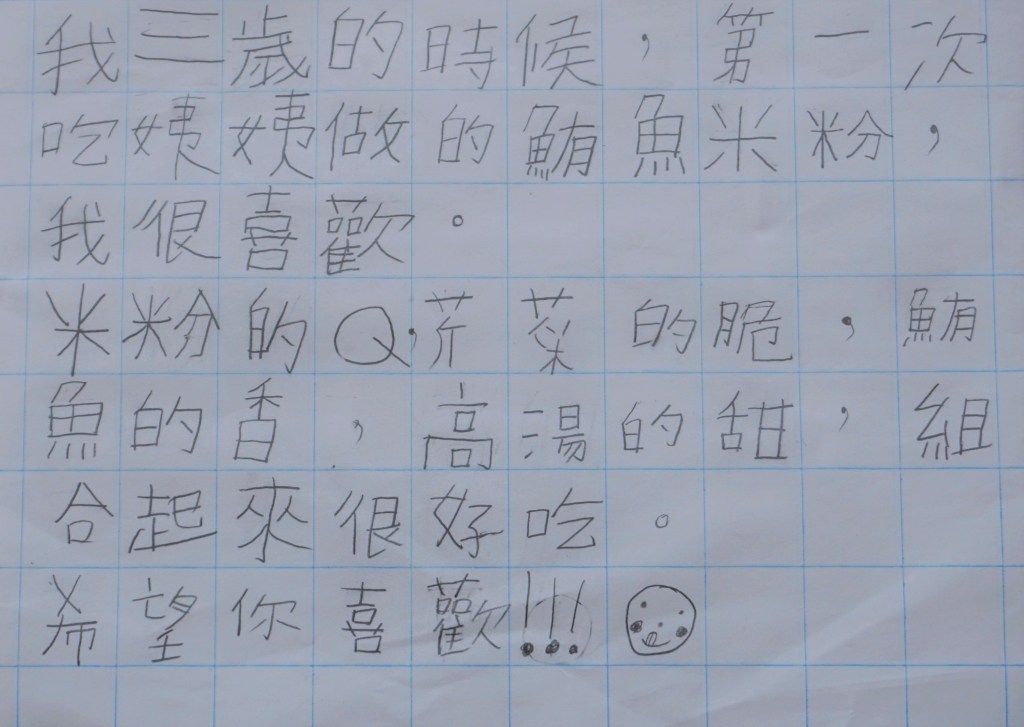 我三歲的時候，第一次
吃姨姨做的鮪魚米粉，
我很喜歡。
米粉的Q，芥菜的脆，鮪
魚的香，高湯的甜，組
合起來很好吃。
希望你喜歡!!!